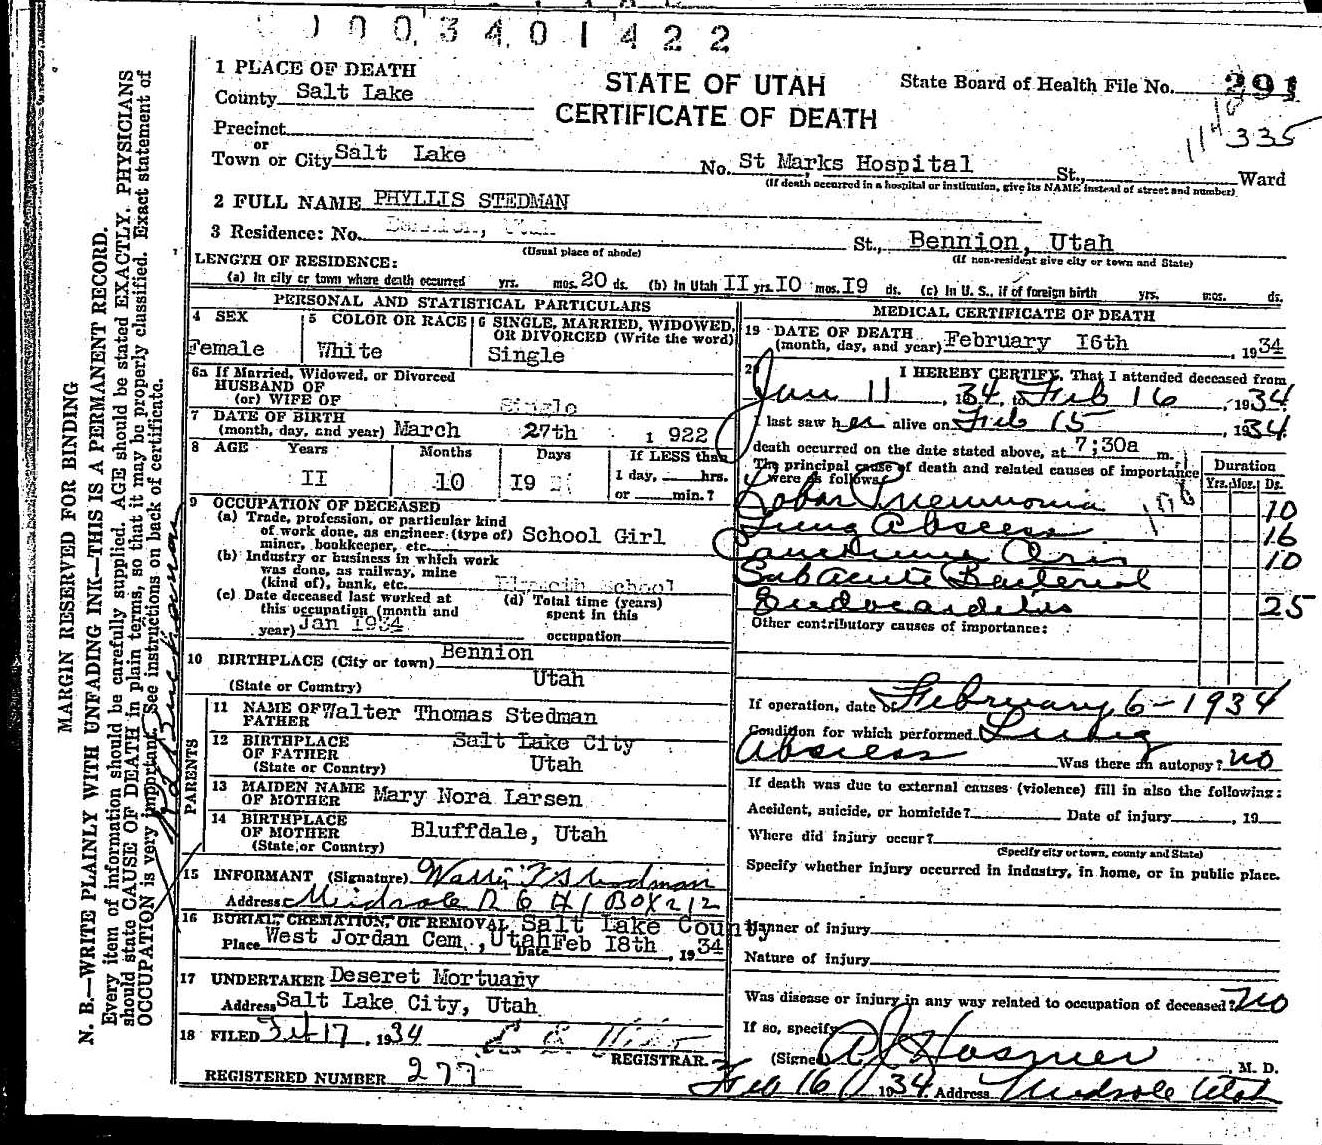 1 0 0 3 4 0 1 4 2 2
1 PLACE OF DEATH
County Salt Lake
Precinct
or
Town or City Salt Lake
STATE OF UTAH
CERTIFICATE OF DEATH
State Board of Health File No. 291
335
No. St Marks Hospital St., Ward
(If death occurred in a hospital or institution, give its NAME instead of street and number)
2 FULL NAME PHYLLIS STEDMAN
3 Residence: No. Bennion, Utah St., Bennion, Utah
(Usual place of abode) (If non-resident give city or town and State)
LENGTH OF RESIDENCE:
(a) In city or town where death occurred yrs. mos. 20 ds. (b) In Utah II yrs. IO mos. I9 ds. (c) In U. S., if of foreign birth yrs. mos. ds.
PERSONAL AND STATISTICAL PARTICULARS
4 SEX
Female
5 COLOR OR RACE
White
6 SINGLE, MARRIED, WIDOWED, OR DIVORCED (Write the word)
Single
6a If Married, Widowed, or Divorced
HUSBAND OF
(or) WIFE OF Single
7 DATE OF BIRTH
(month, day, and year) March 27th 1 922
8 AGE Years Months Days If LESS than
II 10 I9 1 day, hrs.
or min.?
9 OCCUPATION OF DECEASED
(a) Trade, profession, or particular kind
of work done, as engineer (type of) School Girl
miner, bookkeeper, etc.
(b) Industry or business in which work
was done, as railway, mine
(kind of), bank, etc. School
(c) Date deceased last worked at
this occupation (month and
year) Jan I934
(d) Total time (years)
spent in this
occupation
10 BIRTHPLACE (City or town) Bennion
(State or Country) Utah
PARENTS
11 NAME OF FATHER Walter Thomas Stedman
12 BIRTHPLACE OF FATHER Salt Lake City
(State or Country) Utah
13 MAIDEN NAME OF MOTHER Mary Nora Larsen
14 BIRTHPLACE OF MOTHER Bluffdale, Utah
(State or Country)
15 INFORMANT (Signature) Stedman
Address R 6 # 1 Box 212
16 BURIAL, CREMATION, OR REMOVAL Salt Lake County
Place West Jordan Cem., Utah Date Feb I8th, 19 34
17 UNDERTAKER Deseret Mortuary
Address Salt Lake City, Utah
18 FILED Feb 17, 19 34
REGISTRAR.
REGISTERED NUMBER 277
MEDICAL CERTIFICATE OF DEATH
19 DATE OF DEATH
(month, day, and year) February I6th, 19 34
I HEREBY CERTIFY, That I attended deceased from
Jan 11, 19 34, to Feb 16, 19 34
I last saw her alive on Feb 15, 19 34
death occurred on the date stated above, at 7;30a m.
The principal cause of death and related causes of importance were as follows: Duration
Yrs. Mos. Ds.
Lobar Pneumonia 10
Lung Abscess 16
Cancrum Oris 10
Sub Acute Bacterial
Endocarditis 25
Other contributory causes of importance:
If operation, date of February 6-1934
Condition for which performed Lung
Abscess Was there an autopsy? no
If death was due to external causes (violence) fill in also the following:
Accident, suicide, or homicide? Date of injury, 19
Where did injury occur?
(Specify city or town, county and State)
Specify whether injury occurred in industry, in home, or in public place.
Manner of injury
Nature of injury
Was disease or injury in any way related to occupation of deceased? No
If so, specify
(Signed) M. D.
Feb 16 19 34 Address Midvale Utah
MARGIN RESERVED FOR BINDING
N. B.—WRITE PLAINLY WITH UNFADING INK—THIS IS A PERMANENT RECORD.
Every item of information should be carefully supplied. AGE should be stated EXACTLY. PHYSICIANS
should state CAUSE OF DEATH in plain terms, so that it may be properly classified. Exact statement of
OCCUPATION is very important. See instructions on back of certificate.